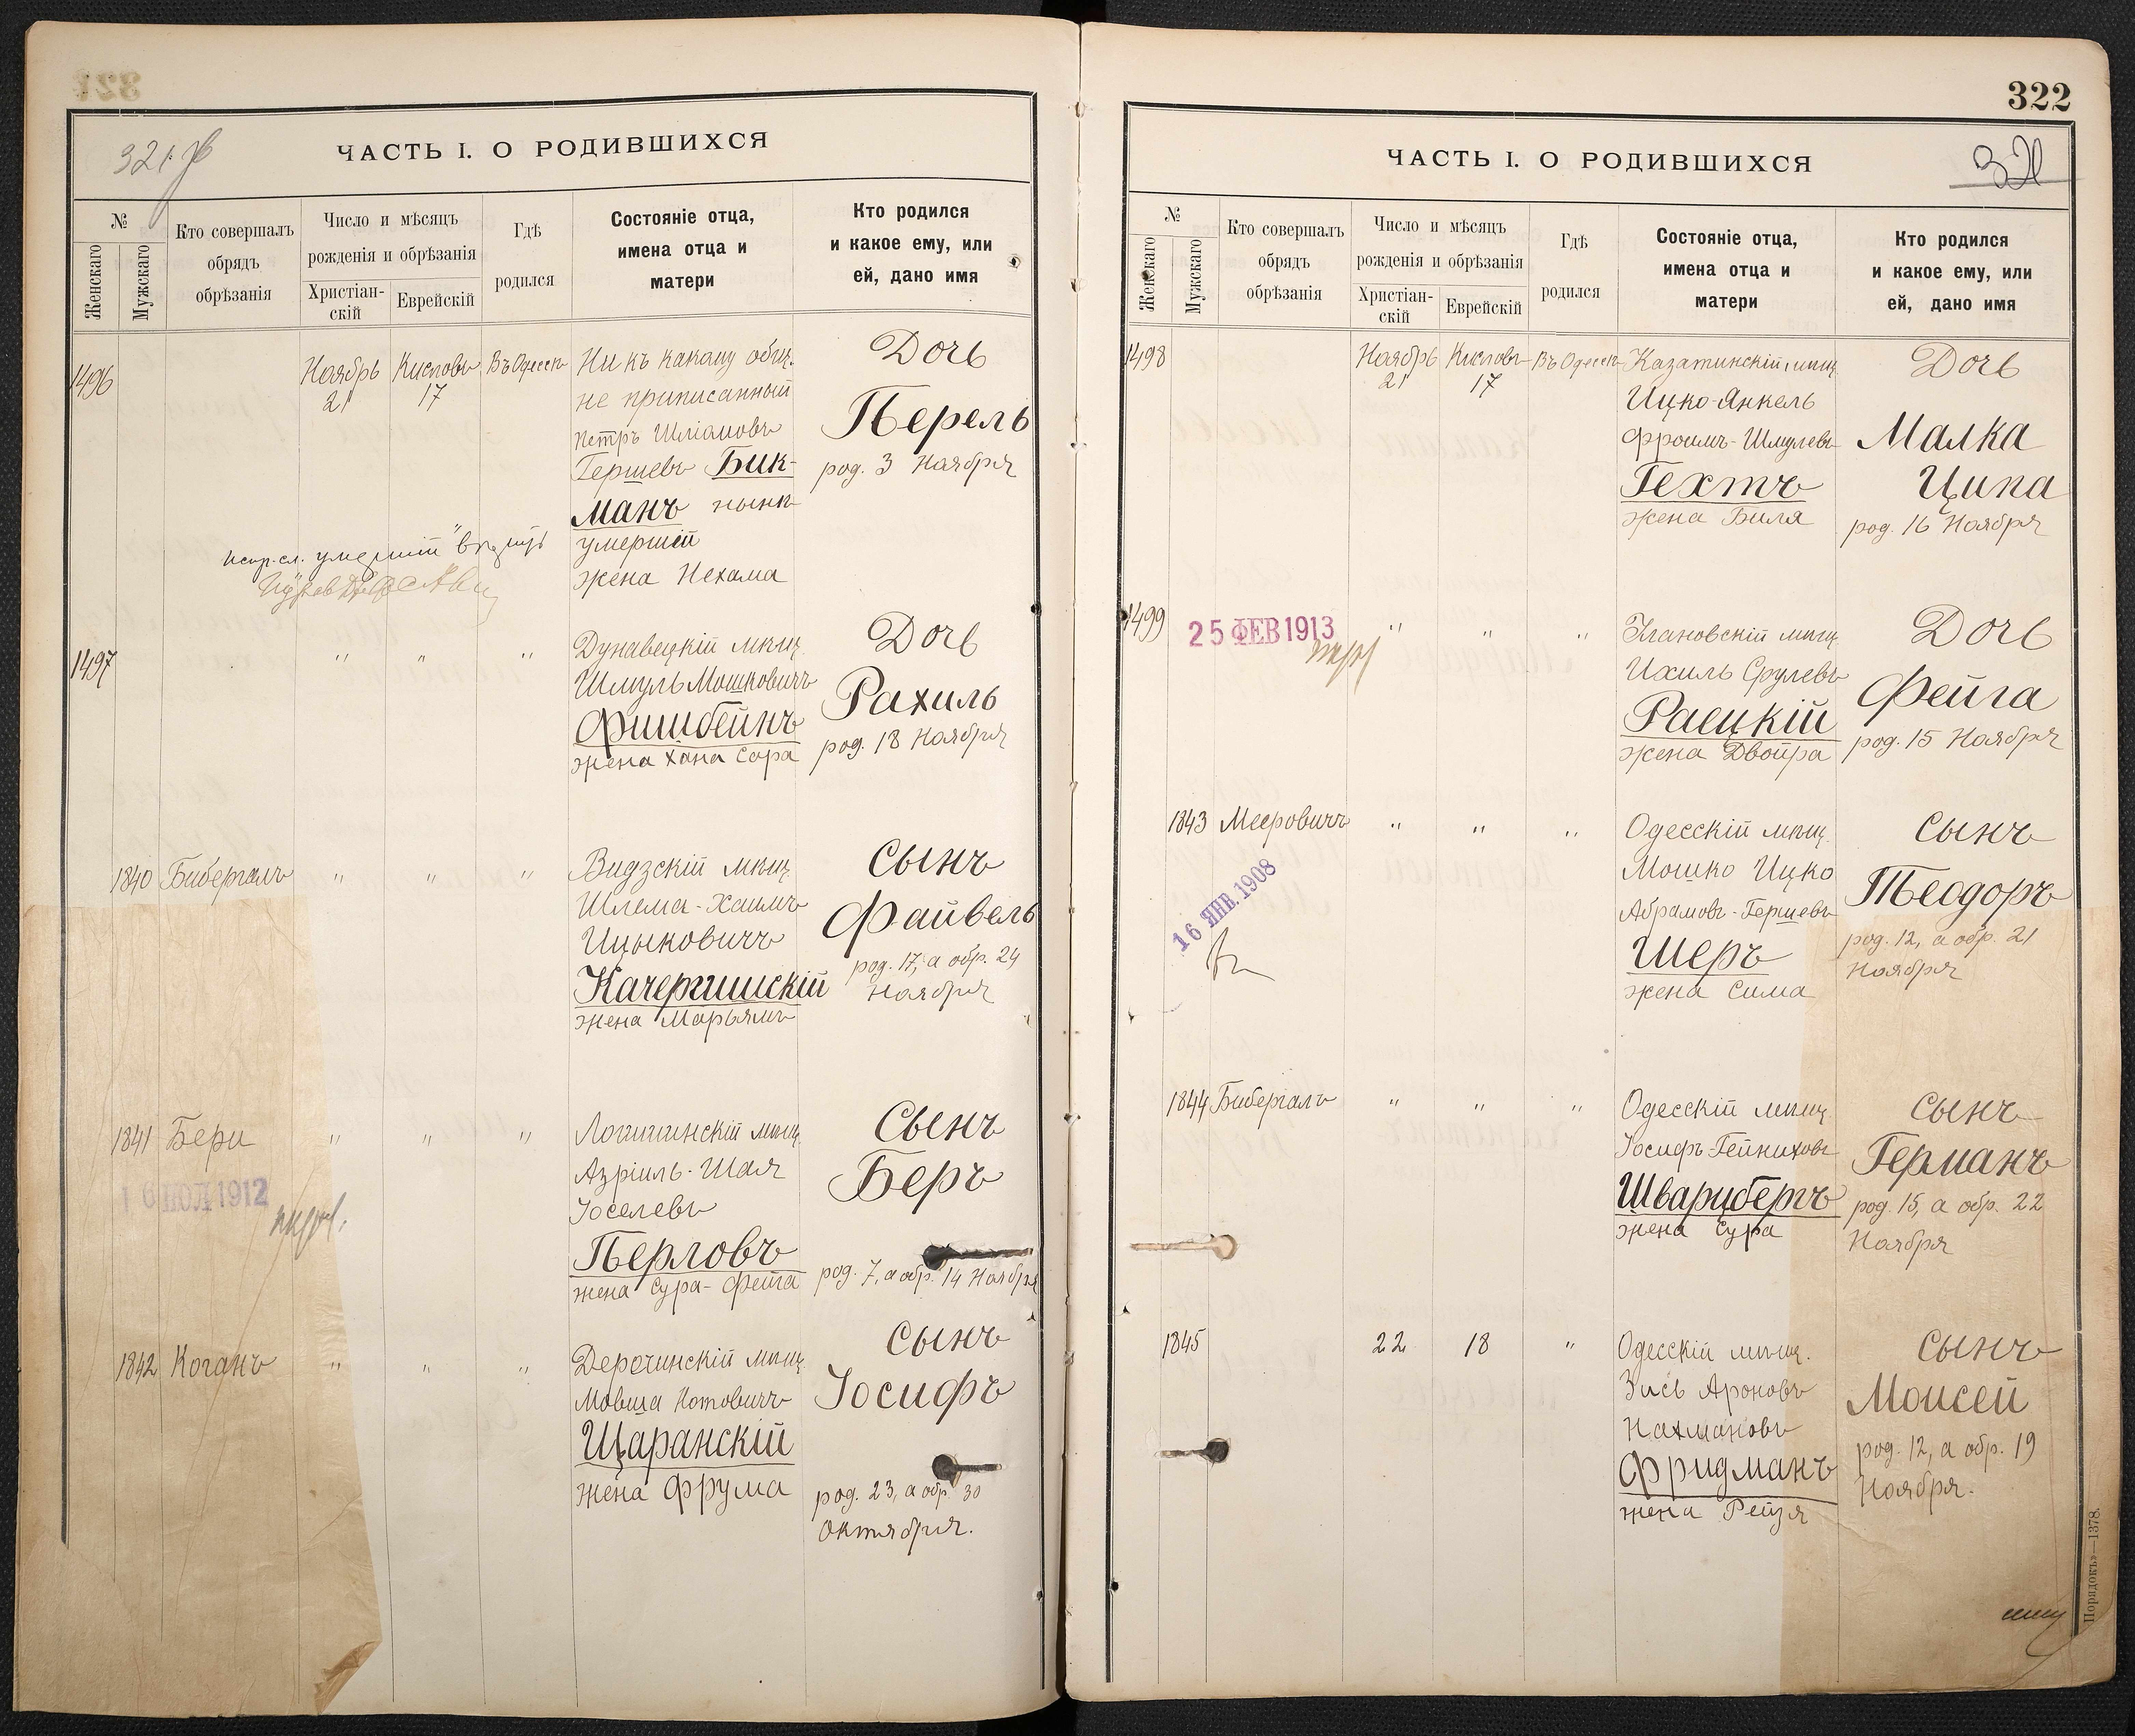 321 об
ЧАСТЬ I. О РОДИВШИХСЯ
№
Женскаго
Мужскаго
Кто совершалъ
обрядъ
обрѣзанія
Число и мѣсяцъ
рожденія и обрѣзанія
Христіан-
скій
Еврейскій
Гдѣ
родился
Состояніе отца,
имена отца и
матери
Кто родился
и какое ему, или
ей, дано имя
1496
Ноябрь
21
Кислевъ
17
Въ Одессѣ
Ни къ какому общ.
не приписанный
Петръ Шліомовъ
Гершевъ Бик-
манъ нынѣ
умершій
жена Нехама
Дочь
Перель
род. 3 Ноября
испр. сл. умершій" вѣрить
1497
" " "
Дунавецкій мѣщ.
Шмуль Мошковичъ
Фишбейнъ
жена Хана Сара
Дочь
Рахиль
род. 18 Ноября
1840 Бибергалъ " " "
Видзскій мѣщ.
Шлема-Хаимъ
Ицыковичъ
Качергишскій
жена Марьямъ
Сынъ
Файвель
род. 17, а обр. 24
Ноября
1841 Бери " " "
16 ИЮЛ 1912
Логишинскій мѣщ.
Азріиль-Шая
Іоселевъ
Перловъ
жена Сура-Фейга
Сынъ
Беръ
род. 7, а обр. 14 Ноября
1842 Коганъ " " "
Деречинскій мѣщ.
Мовша Нотовичъ
Щаранскій
жена Фрума
Сынъ
Іосифъ
род. 23, а обр. 30
Октября.
322
ЧАСТЬ I. О РОДИВШИХСЯ
№
Женскаго
Мужскаго
Кто совершалъ
обрядъ
обрѣзанія
Число и мѣсяцъ
рожденія и обрѣзанія
Христіан-
скій
Еврейскій
Гдѣ
родился
Состояніе отца,
имена отца и
матери
Кто родился
и какое ему, или
ей, дано имя
1498
Ноябрь
21
Кислевъ
17
Въ Одессѣ
Казатинскій мѣщ.
Ицко-Янкель
Фроимъ-Шмулевъ
Гехтъ
жена Биля
Дочь
Малка
Ципа
род. 16 Ноября
1499
25 ФЕВ 1913
" " "
Улановскій мѣщ.
Ихиль Срулевъ
Раецкій
жена Двойра
Дочь
Фейга
род. 15 Ноября
1843 Мееровичъ " " "
16 ЯНВ. 1908
Одесскій мѣщ.
Мошко Ицко
Абрамовъ-Гершевъ
Шеръ
жена Сима
Сынъ
Теодоръ
род. 12, а обр. 21
Ноября
1844 Бибергалъ " " "
Одесскій мѣщ.
Іосифъ-Гейниховъ
Шварцбергъ
жена Сура
Сынъ
Германъ
род. 15, а обр. 22
Ноября
1845
22 18 "
Одесскій мѣщ.
Зись Ароновъ
Нахмановъ
Фридманъ
жена Рейзя
Сынъ
Моисей
род. 12, а обр. 19
Ноября.
Порядокъ»—1378.